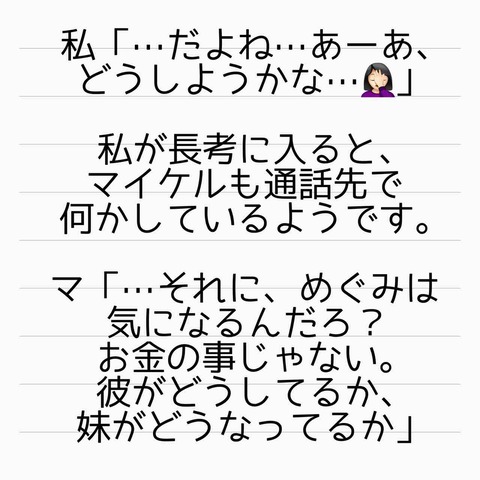 私「…だよね…あーあ、
どうしようかな…🤦🏻‍♀️」
私が長考に入ると、
マイケルも通話先で
何かしているようです。
マ「…それに、めぐみは
気になるんだろ？
お金の事じゃない。
彼がどうしてるか、
妹がどうなってるか」